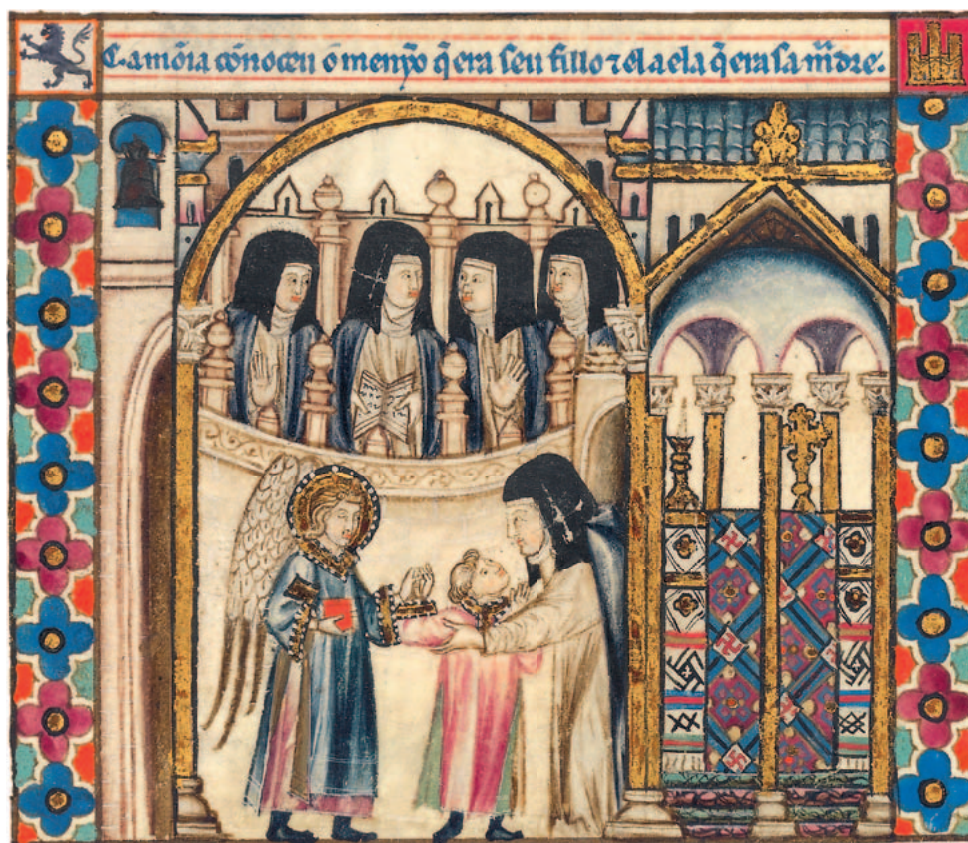 C. a mõia cõnoceu o menỹo q̃ era seu fillo ⁊ el a ela q̃ era sa m̃dre.